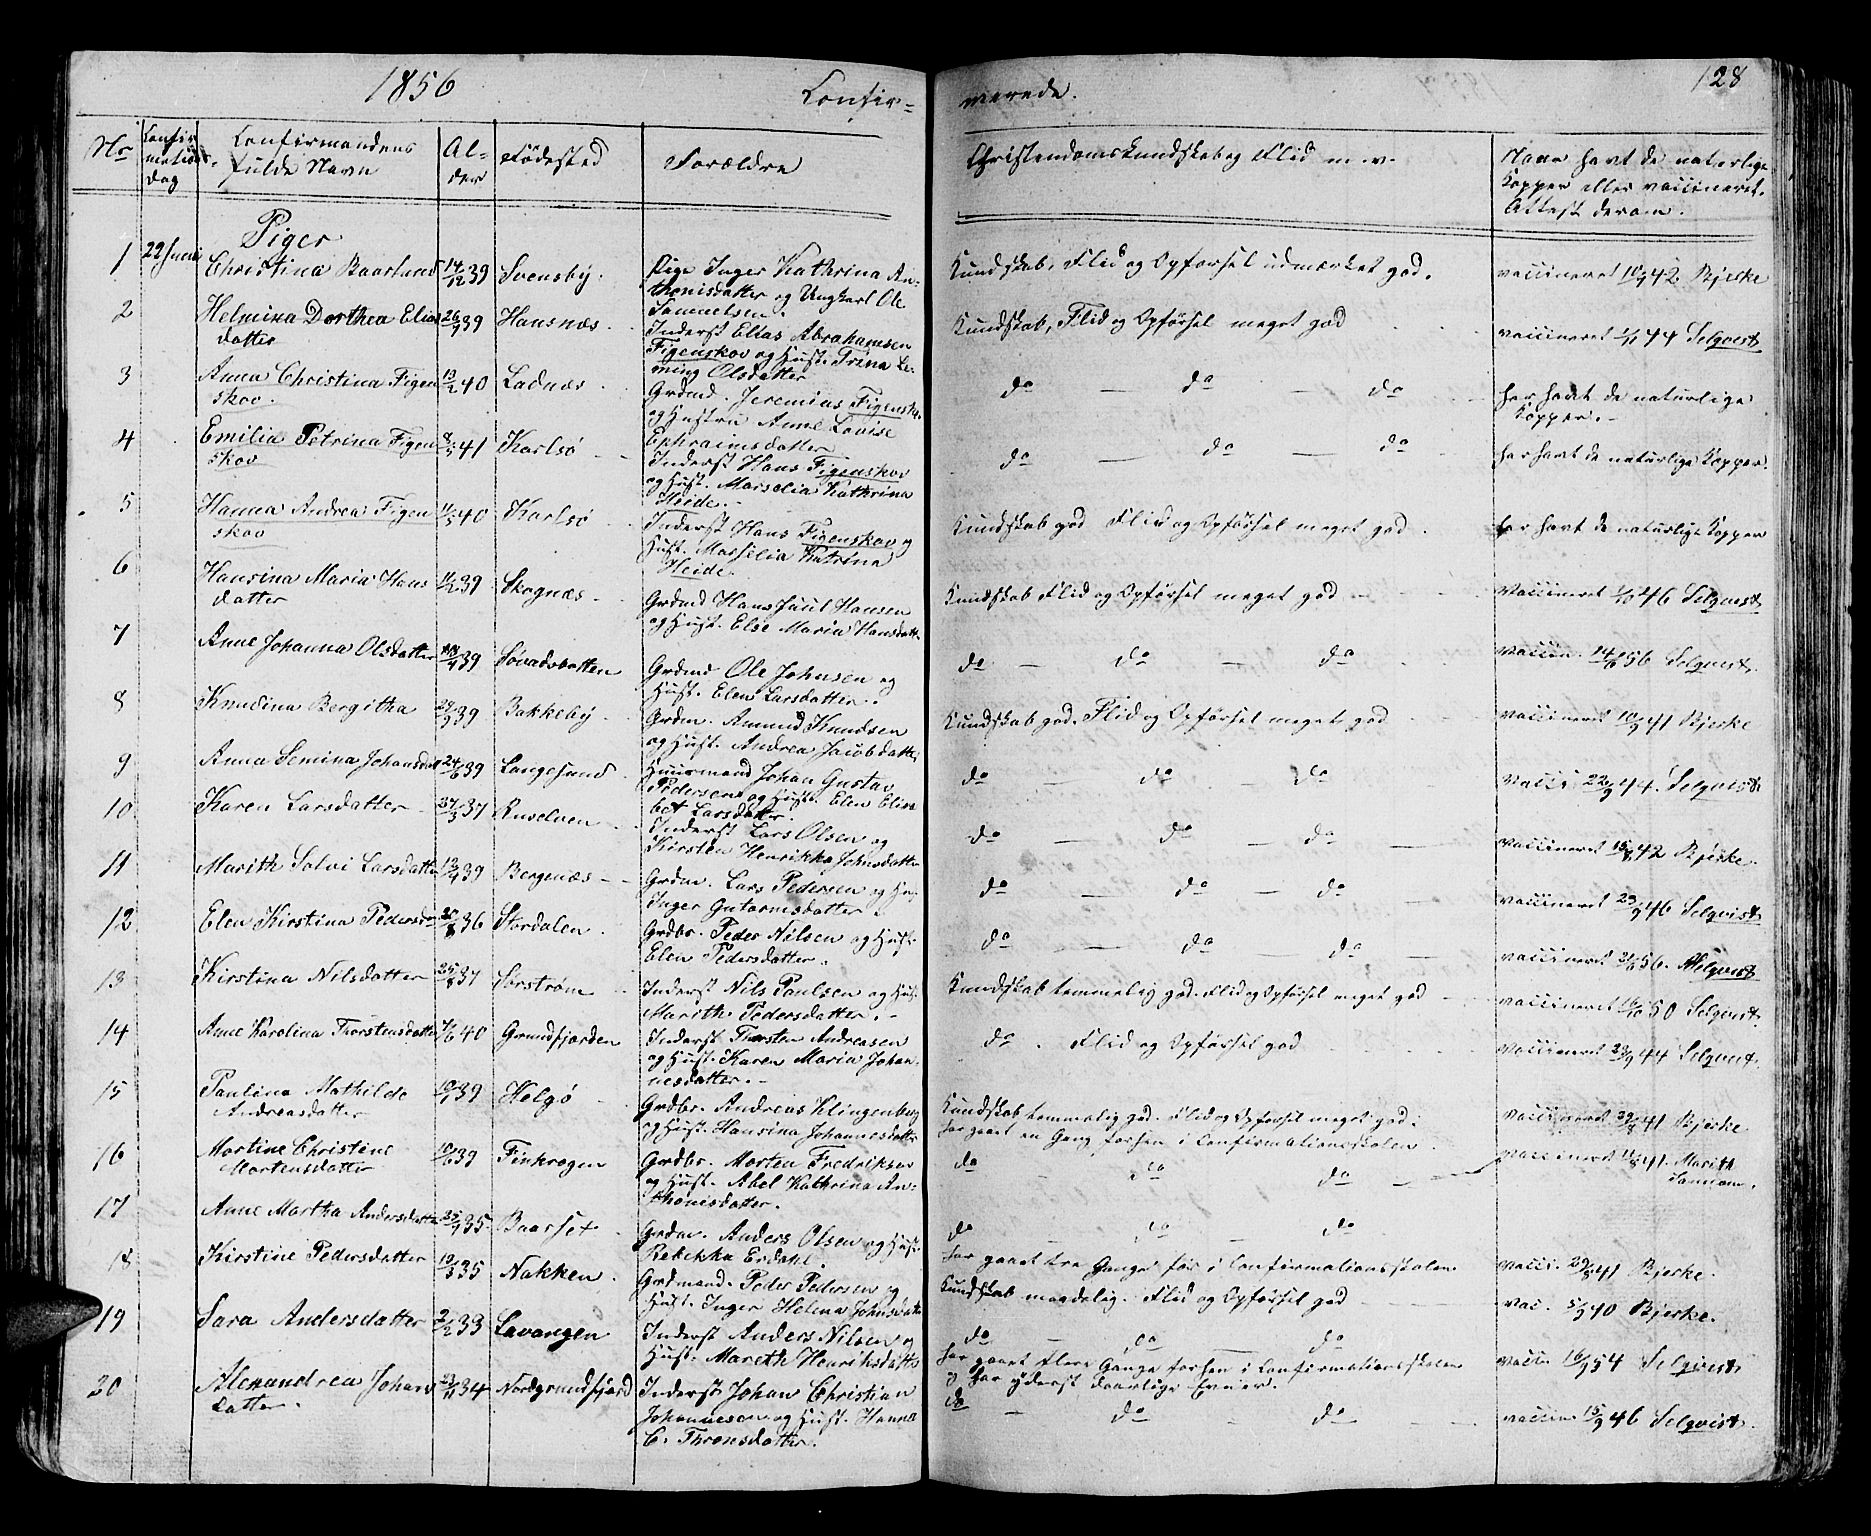 1856
Confir-
merede.
128
No
Confir
mations-
dag
Confirmandens
fulde Navn
Al-
der
Fødested
Forældre
Christendomskundskab og Flid m. v.
Naar havt de naturlige
Kopper eller vaccineret.
Attest derom.
Piger
1 22 Juni Christina Baarlund 14/12 39 Svensby. Pige Inger Kathrina An-
thonisdatter og Ungkarl Ole
Samuelsen.
Kundskab, Flid og Opførsel udmærket god. vaccineret 10/9 42 Bjerke
2 Helmina Dorthea Elias
datter 26/9 39 Hansnæs Inderst Elias Abrahamsen
Figenskov og Hust. Trina Le-
ning Olsdatter
Kundskab, Flid og Opførsel meget god vaccineret 1/11 44 Selqvist
3 Anna Christina Figen
skov. 13/2 40 Ladnæs Grdmd. Jeremias Figensko.
og Hustru Anne Lovise
Ephraimsdatter
do — do — do har havt de naturlige
Kopper. -
4 Emilia Petrina Figen
skov 8/5 41 Karlsø Inderst Hans Figenskov
og Hust. Marselia Kathrina
Heide. -
do — do — do har havt de naturlige Kopper.
5 Hanna Andrea Figen
skov 11/5 40 Karlsø Inderst Hans Figenskov og
Hust. Marselia Katrina
Heide.
Kundskab god Flid og Opførsel meget god har havt de naturlige Kopper
6 Hansina Maria Hans
datter 11/2 39 Skognæs Grdmd Hans Juul Hansen
og Hust. Else Maria Hansdatt.
Kundskab Flid og Opførsel meget god vaccineret 1/10 46 Selqvist
7 Anne Johanna Olsdatter 39 Grdmd Ole Johnsen og
Hust. Elen Larsdatter.
do — do — do vaccin. 14/6 56 Selqvist.
8 Knudina Bergitha 29/9 39 Bakkeby Grdm. Amund Knudsen
og Hust. Andrea Jacobdatte.
Kundskab god. Flid og Opførsel meget god vaccineret 10/9 41 Bjerke
9 Anna Semina Johansdat 24/6 39 Langesund Huusmand Johan Gustav
Pedersen og Hust. Elen Elisa
bet Larsdatter.
do — do — do vacci 22/9 44. Selqvist.
10 Karen Larsdatter 27/3 37 Ruselven Inderst Lars Olsen og
Kirsten Henrikka Johnsdatter
do — do — do vaccineret 15/8 42 Bjerke.
11 Marith Solvi Larsdatter 12/9 39 Bergenæs Grdm. Lars Pedersen og Hus
Inger Gutormsdatter.
do — do — do vaccineret 23/9 46 Selqvist.
12 Elen Kirstina Pedersda 36 Stordalen Grdbr. Peder Nilsen og Hust.
Elen Pedersdatter.
do — do — do vaccineret 56. Selqvist
13 Kirstina Nilsdatter 25/8 37 Sørstrøm Inderst Nils Paulsen og Hus.
Marith Pedersdatter. -
Kundskab temmelig god. Flid og Opførsel meget god vaccineret 16/10 50 Selqvist.
14 Anne Karolina Thorstensdatte 7/6 40 Grundfjorden Inderst Thorsten Andreasen
og Hust. Karen Maria Johan-
nesdatter. -
do. Flid og Opførsel god vaccineret 23/9 44 Selqvist.
15 Paulina Mathilde
Andreasdatter 39 Helgø Grdbr. Andreas Klingenberg
og Hust. Hansina Johannesdatte
Kundskab temmelig god. Flid og Opførsel meget god:
har gaaet en Gang forhen i Confirmationsskolen vaccineret 29/8 41 Bjerke.
16 Martine Christine
Mortensdatter 10/6 39 Finkrogen Grdbr. Morten Fredriksen
og Hust. Abel Kathrina An-
thonisdatter.
do do do vaccineret 11/8 41. Marith

17 Anne Martha Andersdatte 25/9 35 Baarset Grdm. Anders Olsen og Hust.
Rebekka Erdahl.
do — do — do
har gaaet tre Gange før i Confirmationsskolen vacci. 29/8 41 Bjerke.
18 Kirstine Pedersdatter 19/3 35 Nakken. Grdmand. Peder Pedersen og
Hust. Inger Helena Johnsdatte
Kundskab maadelig. Flid og Opførsel god vac. 5/9 40 Bjerke.
19 Sara Andersdatter 2/2 33 Lavangen Inderst Anders Nilsen og
Hust. Mareth Henriksdatte
do — do — do
har gaaet flere Gange forhen i Confirmationsskolen
og har yderst daarlige Evner. vaccin 16/9 54 Selqvist.
20 Alexandrea Johans
datter. 23/11 34 Nordgrundfjord Inderst Johan Christian
Johannesen og Hust. Hanna
C. Thronsdatter.
do — do — do vaccin 15/9 46 Selqvist.